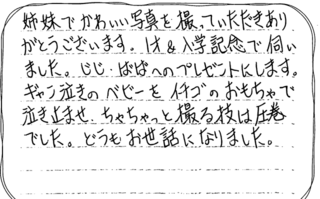 姉妹でかわいい写真を撮っていただきあり
がとうございます。1才&入学記念で伺い
ました。じじ・ばばへのプレゼントにします。
ギャン泣きのベビーをイチゴのおもちゃで
泣き止ませ、ちゃちゃっと撮る技は圧巻
でした。どうもお世話になりました。